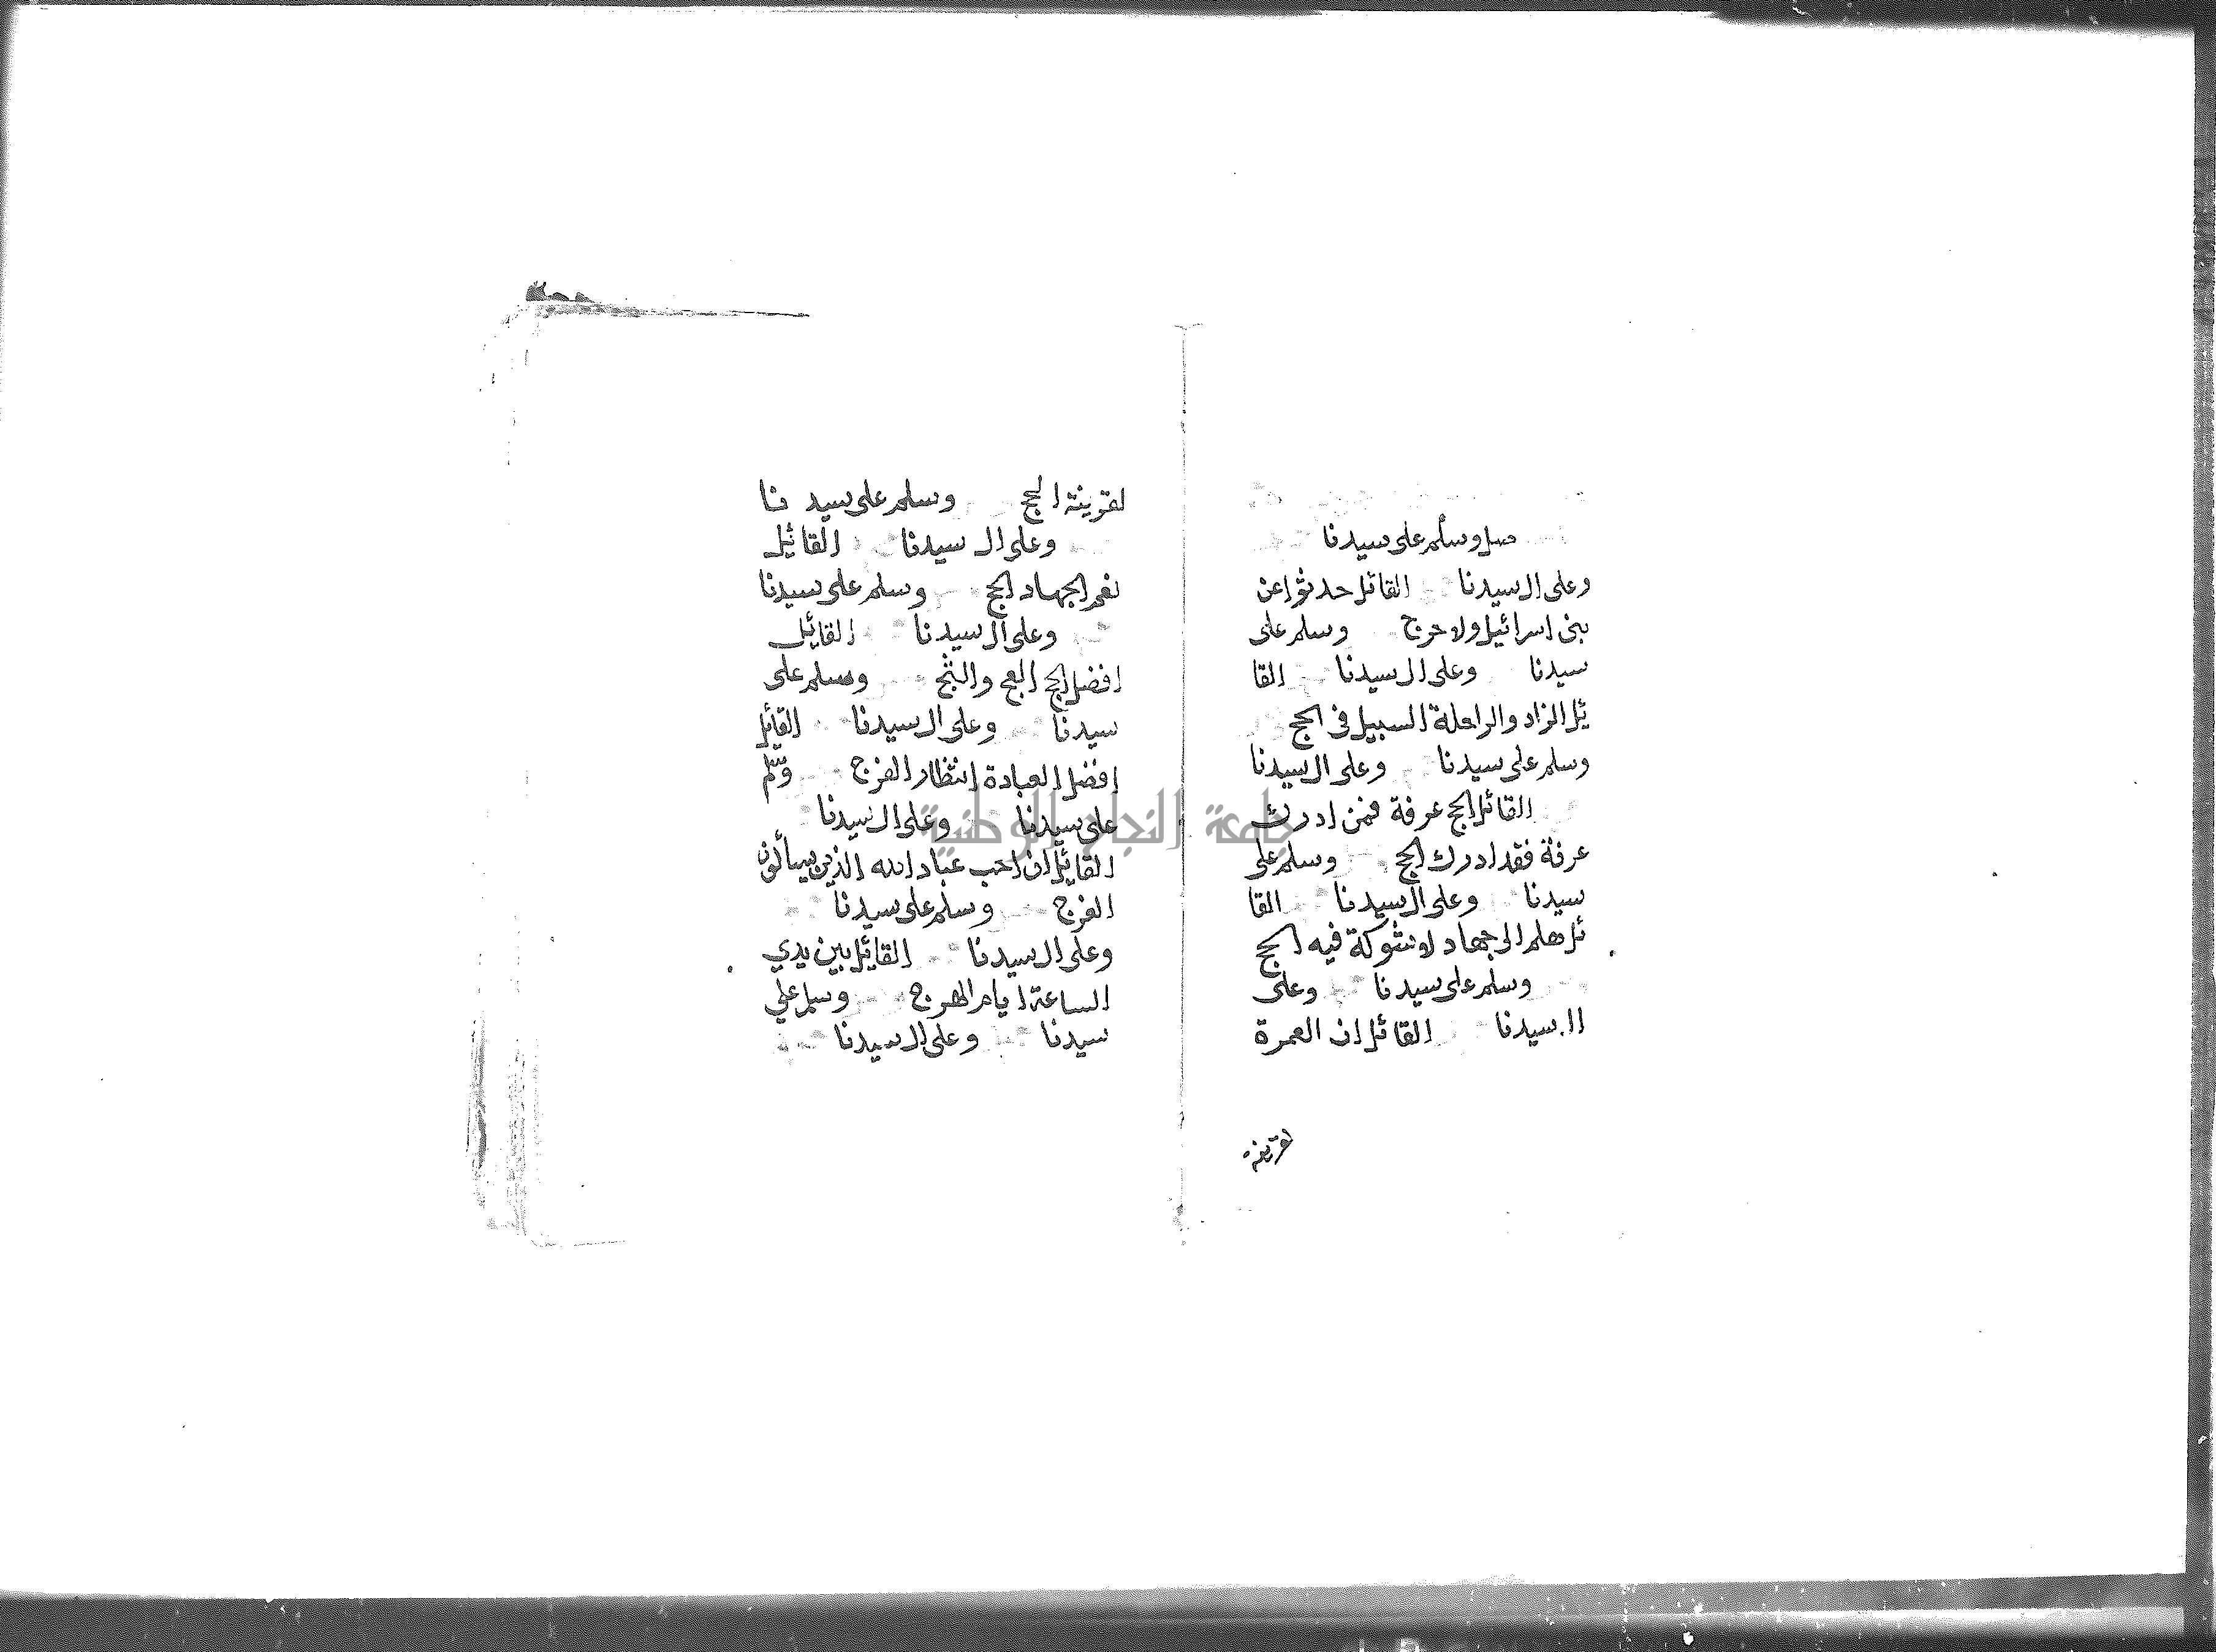 صل وسلم على سيدنا
وعلى ال سيدنا القائل حدثوا عن
بنى اسرائيل ولا حرج وسلم على
سيدنا وعلى ال سيدنا القا
ئل الزاد والراحلة السبيل فى الحج
وسلم على سيدنا وعلى ال سيدنا
القائل الحج عرفة فمن ادرك
عرفة فقد ادرك الحج وسلم على
سيدنا وعلى ال سيدنا القا
ئل هلم الى جهاد لا شوكة فيه الحج
وسلم على سيدنا وعلى
ال سيدنا القائل ان العمرة
لقرينة
لقرينة الحج وسلم على سيدنا
وعلى ال سيدنا القائل
نعم الجهاد الحج وسلم على سيدنا
وعلى ال سيدنا القائل
افضل الحج العج والثج وسلم على
سيدنا وعلى ال سيدنا القائل
افضل العبادة انتظار الفرج وسلم
على سيدنا وعلى ال سيدنا
القائل ان احب عباد الله الذين يسألون
الفرج وسلم على سيدنا
وعلى ال سيدنا القائل بين يدي
الساعة ايام الهرج وسلم علي
سيدنا وعلى ال سيدنا
جامعة النجاح الوطنية